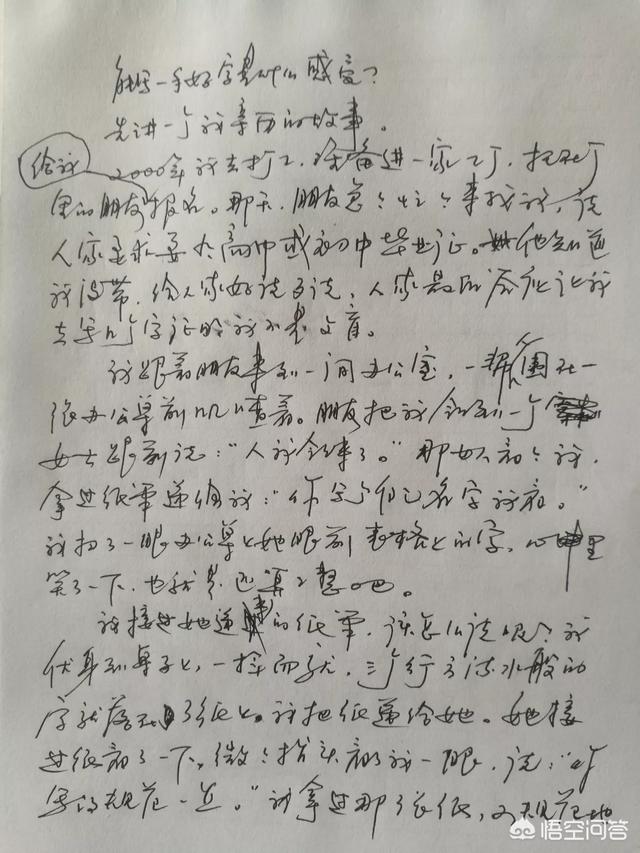 能写一手好字是什么感受？
先讲一个我亲历的故事。
给我
2000年我去打工，准备进一家工厂，托在厂
里的朋友报名。那天，朋友急急忙忙来找我，说
人家要求要个高中或初中毕业证。她他知道
我没带，给人家好说歹说，人家最后答应让我
去写几个字证明我不是文盲。
我跟着朋友来到一间办公室，一帮人围在一
张办公桌前叽叽喳喳着。朋友把我领到一个
女士跟前说：“人我领来了。”那女士看看我，
拿过纸笔递给我：“你写个自己名字我看。”
我扫了一眼办公桌上她眼前表格上的字，心里
笑了一下，也就是还算工整吧。
我接过她递来的纸笔，该怎么说呢？我
伏身到桌子上，一挥而就，三个行云流水般的
字就落到了纸上。我把纸递给她。她接
过纸看了一下，微微抬头看了我一眼，说：“你
写的规范一点。”我拿过那张纸，又规范地
悟空问答